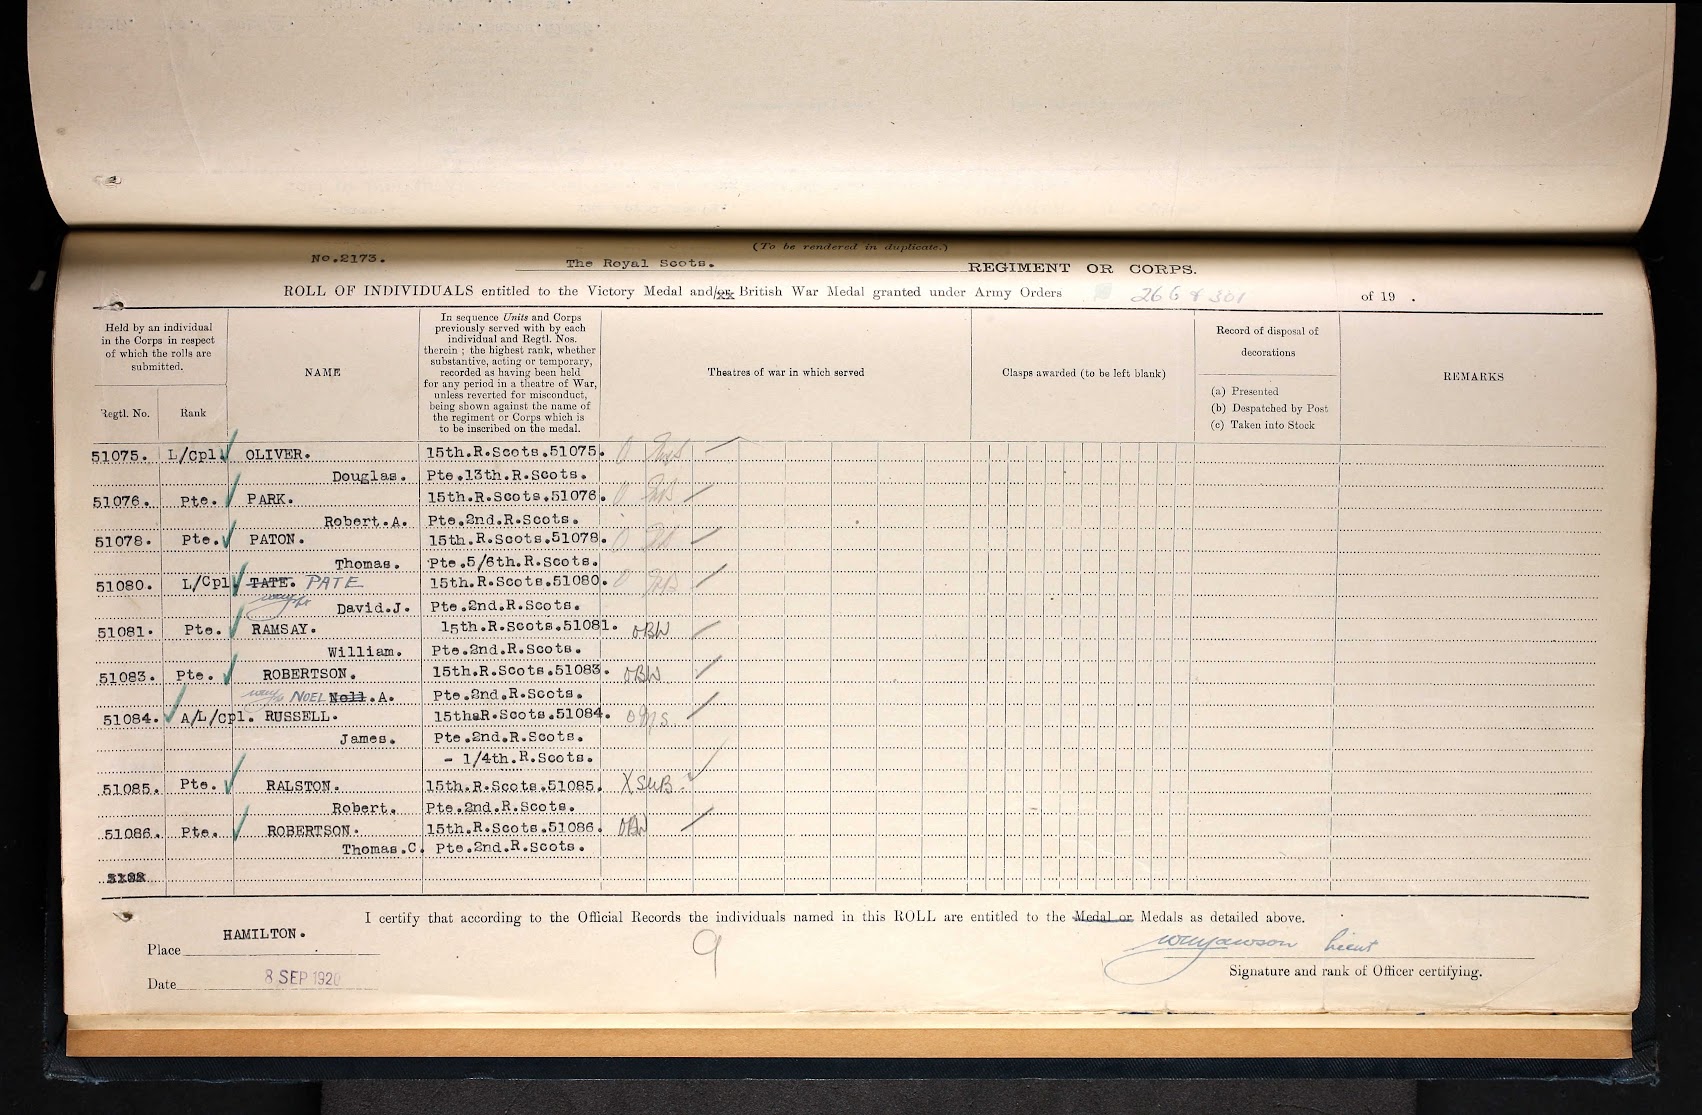 (To be rendered in duplicate.)
No.2173.
The Royal Scots. REGIMENT OR CORPS.
ROLL OF INDIVIDUALS entitled to the Victory Medal and/or British War Medal granted under Army Orders 266 & 301 of 19 .
Held by an individual
in the Corps in respect
of which the rolls are
submitted.
Regtl. No.
Rank
NAME
In sequence Units and Corps
previously served with by each
individual and Regtl. Nos.
therein ; the highest rank, whether
substantive, acting or temporary,
recorded as having been held
for any period in a theatre of War,
unless reverted for misconduct,
being shown against the name of
the regiment or Corps which is
to be inscribed on the medal.
Theatres of war in which served
Clasps awarded (to be left blank)
Record of disposal of
decorations
(a) Presented
(b) Despatched by Post
(c) Taken into Stock
REMARKS
51075. L/Cpl OLIVER. 15th.R.Scots.51075.
Douglas. Pte.13th.R.Scots.
51076. Pte. PARK. 15th.R.Scots.51076.
Robert.A. Pte.2nd.R.Scots.
51078. Pte. PATON. 15th.R.Scots.51078.
Thomas. Pte.5/6th.R.Scots.
51080. L/Cpl TATE. PATE 15th.R.Scots.51080.
David.J. Pte.2nd.R.Scots.
51081. Pte. RAMSAY. 15th.R.Scots.51081. OBW
William. Pte.2nd.R.Scots.
51083. Pte. ROBERTSON. 15th.R.Scots.51083. OBW
NOEL Noll.A. Pte.2nd.R.Scots.
51084. A/L/cpl. RUSSELL. 15thsR.Scots.51084.
James. Pte.2nd.R.Scots.
- 1/4th.R.Scots.
51085. Pte. RALSTON. 15th.R.Scots.51085.
Robert. Pte.2nd.R.Scots.
51086. Pte. ROBERTSON. 15th.R.Scots.51086. OBW
Thomas.C. Pte.2nd.R.Scots.
I certify that according to the Official Records the individuals named in this ROLL are entitled to the Medal or Medals as detailed above.
Place HAMILTON.
9
Lieut
Signature and rank of Officer certifying.
Date 8 SEP 1920